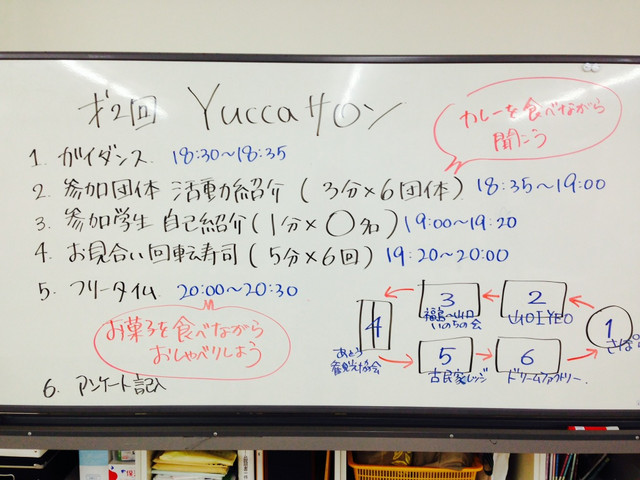 第2回 Yuccaサロン
カレーを食べながら
聞こう
1. ガイダンス 18:30〜18:35
2. 参加団体 活動紹介 (3分×6団体) 18:35〜19:00
3. 参加学生 自己紹介(1分×〇名) 19:00〜19:20
4. お見合い回転寿司(5分×6回) 19:20〜20:00
5. フリータイム 20:00〜20:30
お菓子を食べながら
おしゃべりしよう
6. アンケート記入
3
福島〜山口
いのちの会
2
山口IYEO
1
さぽ
4
あとう
観光協会
5
古民家レッジ
6
ドリームファクトリー